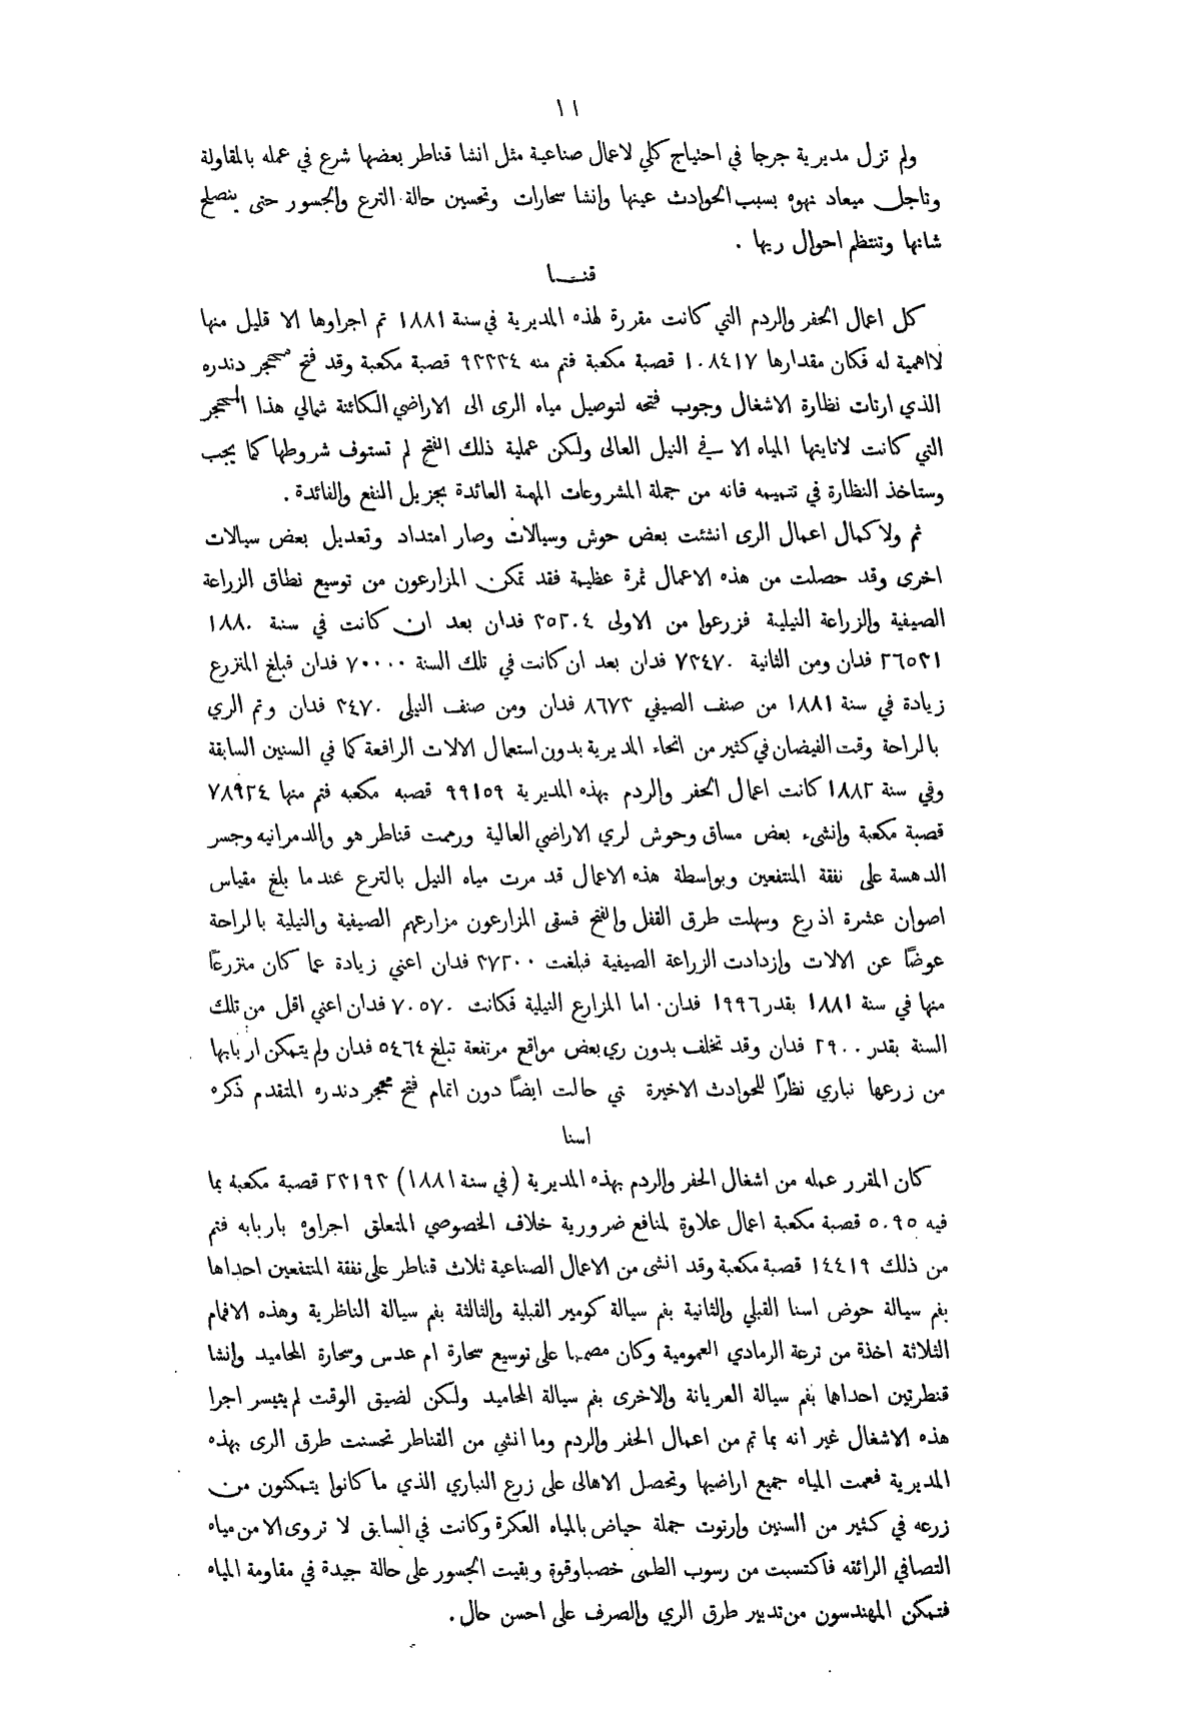 ١١
ولم تزل مديرية جرجا في احتياج كلي لاعمال صناعية مثل انشا قناطر بعضها شرع في عمله بالمقاولة
وتاجل ميعاد نهوه بسبب الحوادث عينها وانشا سحارات وتحسين حالة الترع والجسور حتى ينصلح
شانها وتنتظم احوال ريها .
قنـــا
كل اعمال الحفر والردم التي كانت مقررة لهذه المديرية في سنة ١٨٨١ تم اجراوها الا قليل منها
لااهمية له فكان مقدارها ١٠٨٤١٧ قصبة مكعبة فتم منه ٩٢٣٣٤ قصبة مكعبة وقد فتح محجر دندره
الذي ارتات نظارة الاشغال وجوب فتحه لتوصيل مياه الرى الى الاراضي الكائنة شمالي هذا المحجر
التي كانت لاتايتها المياه الا في النيل العالى ولكن عملية ذلك الفتح لم تستوف شروطها كما يجب
وستاخذ النظارة في تتميمه فانه من جملة المشروعات المهمة العائدة بجزيل النفع والفائدة .
ثم ولاكمال اعمال الرى انشئت بعض حوش وسيالات وصار امتداد وتعديل بعض سيالات
اخرى وقد حصلت من هذه الاعمال ثمرة عظيمة فقد تمكن المزارعون من توسيع نطاق الزراعة
الصيفية والزراعة النيلية فزرعوا من الاولى ٣٥٢٠٤ فدان بعد ان كانت في سنة ١٨٨٠
٢٦٥٣١ فدان ومن الثانية ٧٣٤٧٠ فدان بعد ان كانت في تلك السنة ٧٠٠٠٠ فدان فبلغ المنزرع
زيادة في سنة ١٨٨١ من صنف الصيفي ٨٦٧٣ فدان ومن صنف النيلى ٣٤٧٠ فدان وتم الري
بالراحة وقت الفيضان في كثير من انحاء المديرية بدون استعمال الالات الرافعة كما في السنين السابقة
وفي سنة ١٨٨٢ كانت اعمال الحفر والردم بهذه المديرية ٩٩١٥٩ قصبه مكعبه فتم منها ٧٨٩٢٤
قصبة مكعبة وانشىء بعض مساق وحوش لري الاراضي العالية ورممت قناطر هو والدمرانيه وجسر
الدهسة على نفقة المنتفعين وبواسطة هذه الاعمال قد مرت مياه النيل بالترع عندما بلغ مقياس
اصوان عشرة اذرع وسهلت طرق القفل والفتح فسقى المزارعون مزارعهم الصيفية والنيلية بالراحة
عوضًا عن الالات وازدادت الزراعة الصيفية فبلغت ٣٧٢٠٠ فدان اعني زيادة عما كان منزرعًا
منها في سنة ١٨٨١ بقدر ١٩٩٦ فدان . اما المزارع النيلية فكانت ٧٠٥٧٠ فدان اعني اقل من تلك
السنة بقدر ٢٩٠٠ فدان وقد تخلف بدون ري بعض مواقع مرتفعة تبلغ ٥٤٦٤ فدان ولم يتمكن اربابها
من زرعها نباري نظرًا للحوادث الاخيرة تي حالت ايضًا دون اتمام فتح محجر دندره المتقدم ذكره
اسنا
كان المقرر عمله من اشغال الحفر والردم بهذه المديرية (في سنة ١٨٨١) ٢٣١٩٣ قصبة مكعبة بما
فيه ٥٠٩٥ قصبة مكعبة اعمال علاوة لمنافع ضرورية خلاف الخصوصي المتعلق اجراوه باربابه فتم
من ذلك ١٤٤١٩ قصبة مكعبة وقد انشى من الاعمال الصناعية ثلاث قناطر على نفقة المنتفعين احداها
بفم سيالة حوض اسنا القبلي والثانية بفم سيالة كومير القبلية والثالثة بفم سيالة الناظرية وهذه الافمام
الثلاثة اخذة من ترعة الرمادي العمومية وكان مصمما على توسيع سحارة ام عدس وسحارة المحاميد وانشا
قنطرتين احداها بفم سيالة العريانة والاخرى بفم سيالة المحاميد ولكن لضيق الوقت لم يتيسر اجرا
هذه الاشغال غير انه بما تم من اعمال الحفر والردم وما انشي من القناطر تحسنت طرق الرى بهذه
المديرية فعمت المياه جميع اراضيها وتحصل الاهالى على زرع النباري الذي ما كانوا يتمكنون من
زرعه في كثير من السنين وارتوت جملة حياض بالمياه العكرة وكانت في السابق لا تروى الا من مياه
التصافي الرائقه فاكتسبت من رسوب الطمى خصبا وقوة وبقيت الجسور على حالة جيدة في مقاومة المياه
فتمكن المهندسون من تدبير طرق الري والصرف على احسن حال .